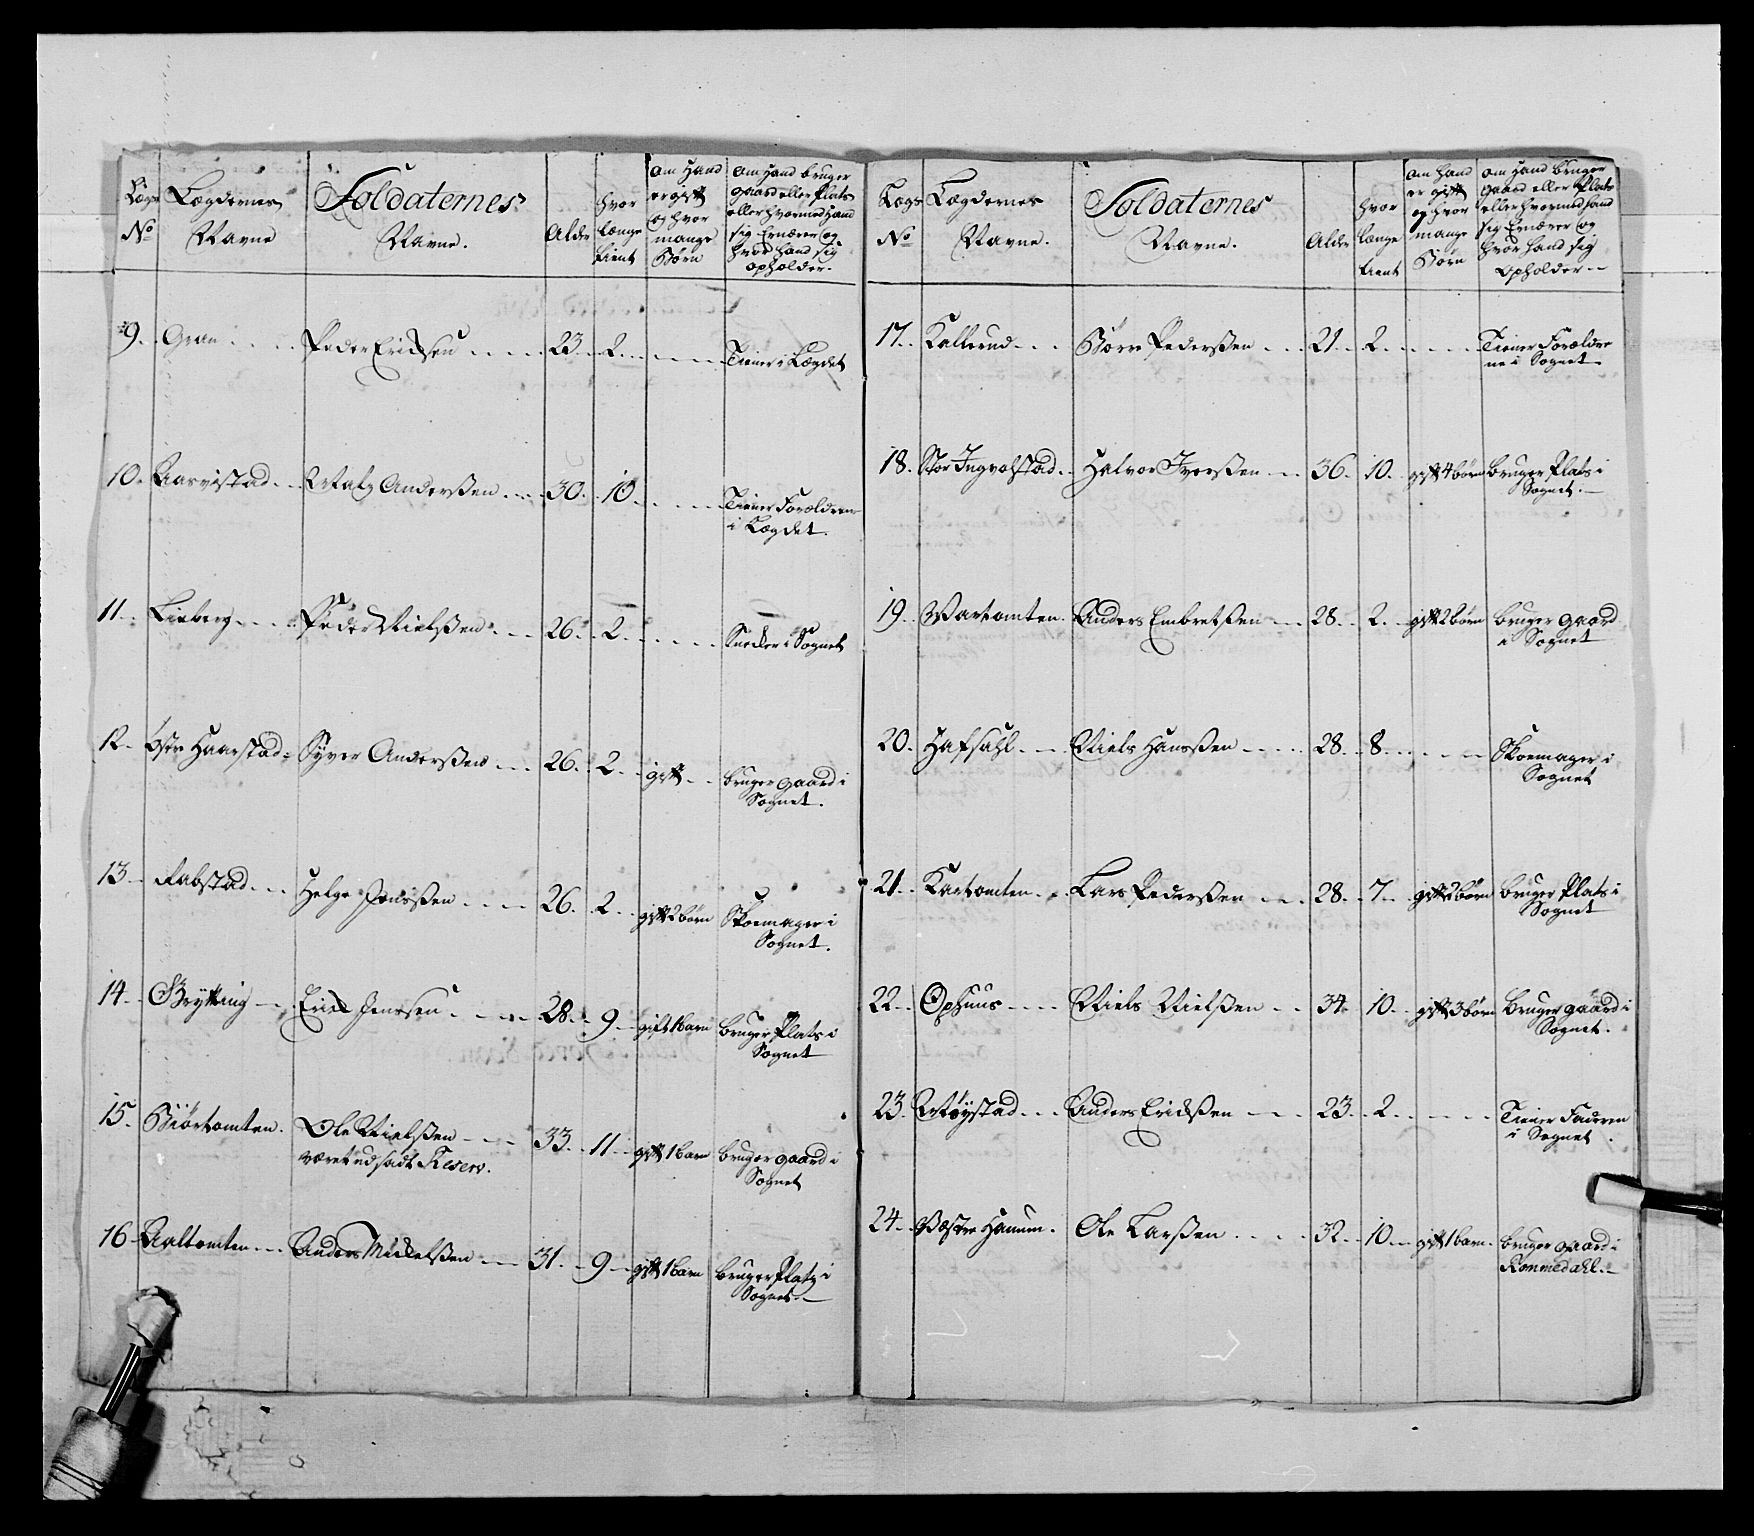 Lægs No
Lægdernes Navne
Soldaternes Navne.
Alder
hvor længe tient
om Hand er gift og hvor mange Børn
om Hand bruger gaard eller Plats eller hvormed Hand sig Ernærer og hvor Hand sig opholder.
9. Gran Peder Erichsen 23. 2. Tiener i Lægdet
10. Aarvistad Matz Anderßen 30. 10. Tiener Forældrene
i Lægdet.
11. Lieberg Peder Nielßen 26. 2. Snedker i Sognet
12. Østr Haarstad Syver Anderßen 26. 2. gift bruger gaard i
Sognet.
13. Rabstad Helge Jonsßen 26. 2. gift 2 børn Skoemager i
Sognet.
14. Brytting Erich Jenssen 28. 9 gift 1 barn bruger Plats i
Sognet
15. Biørtomten. Ole Nielßen 33. 11. gift 1 barn bruger gaard i
været udsadt Reserv. Sognet
16 Aaltomten Anders Mickelßen 31. 9 gift 1 barn bruger Platz i
Sognet.
Lægs No
Lægdernes Navne.
Soldaternes Navne.
Alder
hvor længe tient
om Hand er gift og hvor mange Børn
om Hand bruger gaard eller Plats eller hvormed Hand sig Ernærer og hvor Hand sig Opholder
17. Kallerud Børre Pederßen 21. 2. Tiener Forældre
ne i Sognet
18. Stor Ingvolstad Halvor Iverßen 36. 10. gift 4 børn bruger Plats i
Sognet.
19. Vartomten Anders Embretßen 28. 2. gift 2 børn bruger gaard
i Sognet
20. Hafsahl Niels Hansßen 28. 8. Skoemager i
Sognet
21. Kartomten Lars Pederßen 28. 7. gift 2 børn bruger Plats i
Sognet
22. Ophuus Niels Nielßen 34. 10. gift 3 børn Bruger gaard i
Sognet.
23. Møystad Anders Erichßen 23. 2. Tiener Faderen
i Sognet.
24. Væstre Hanum. Ole Larßen 32. 10. gift 1 barn. bruger gaard i
Rommedahl.